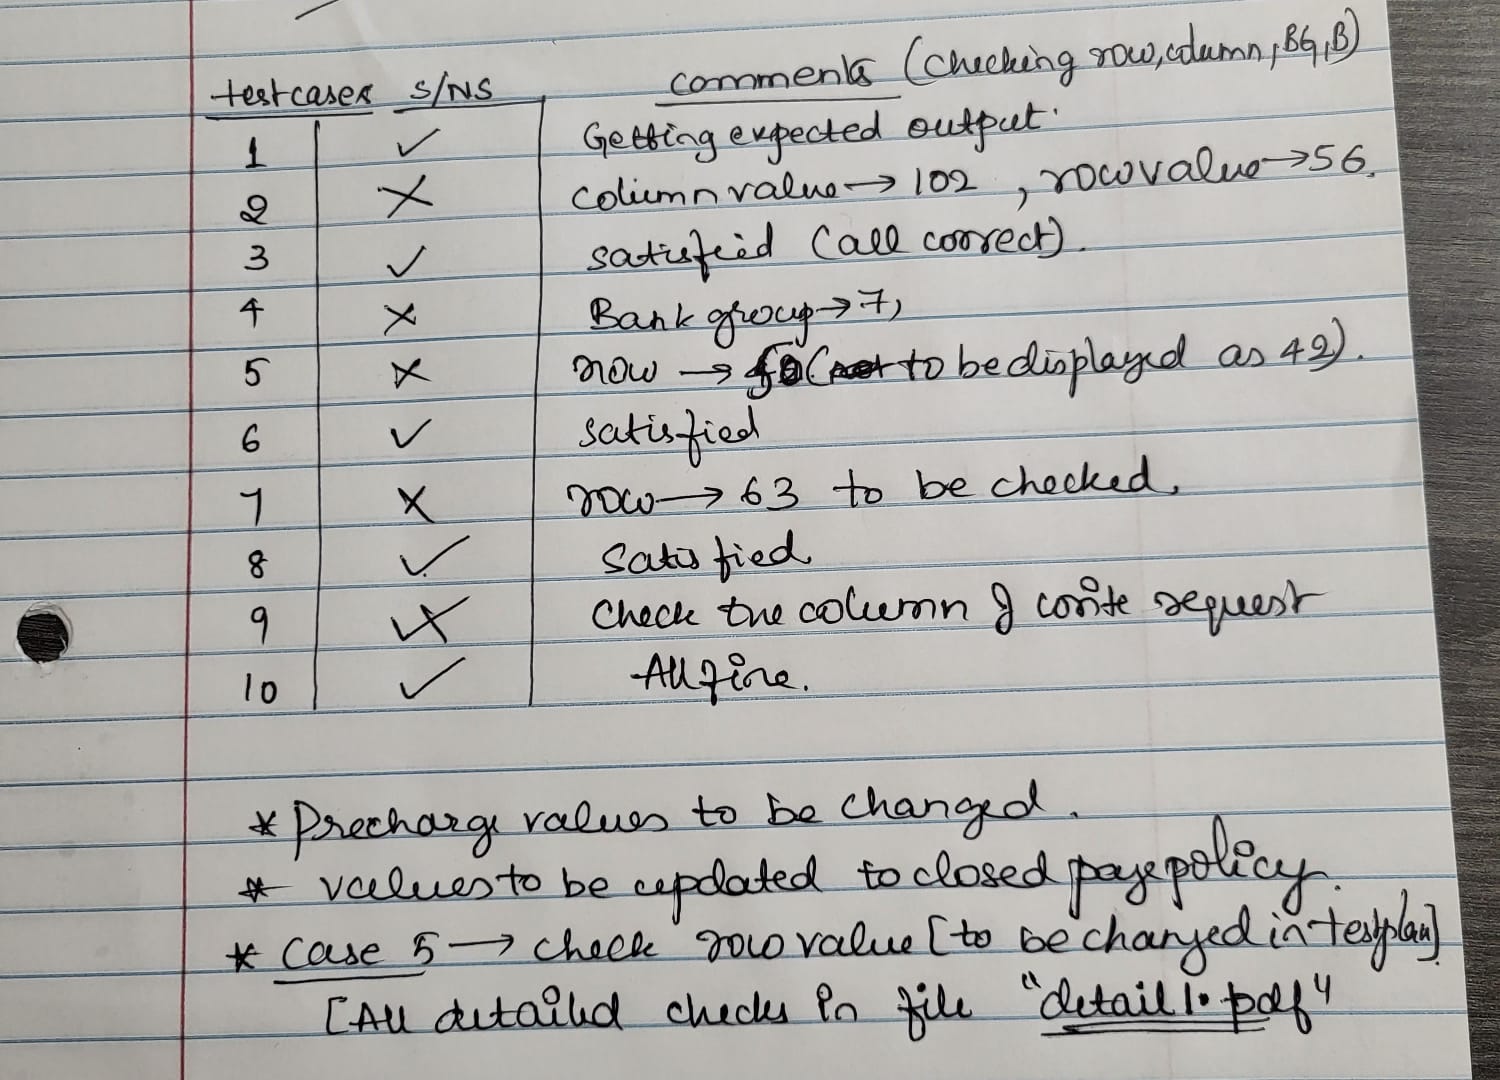 testcases S/NS comments (checking row,column,BG,B)
1 ✓ Getting expected output.
2 X column value → 102 , row value → 56.
3 ✓ satisfied (all correct).
4 X Bank group → 7,
5 X row → (to be displayed as 42).
6 ✓ satisfied
7 X row → 63 to be checked.
8 ✓ Satisfied
9 X Check the column & write request
10 ✓ All fine.
* Precharge values to be changed.
* values to be updated to closed page policy.
* Case 5 → check row value [to be changed in testplan]
[All detailed checks in file "detail1.pdf"